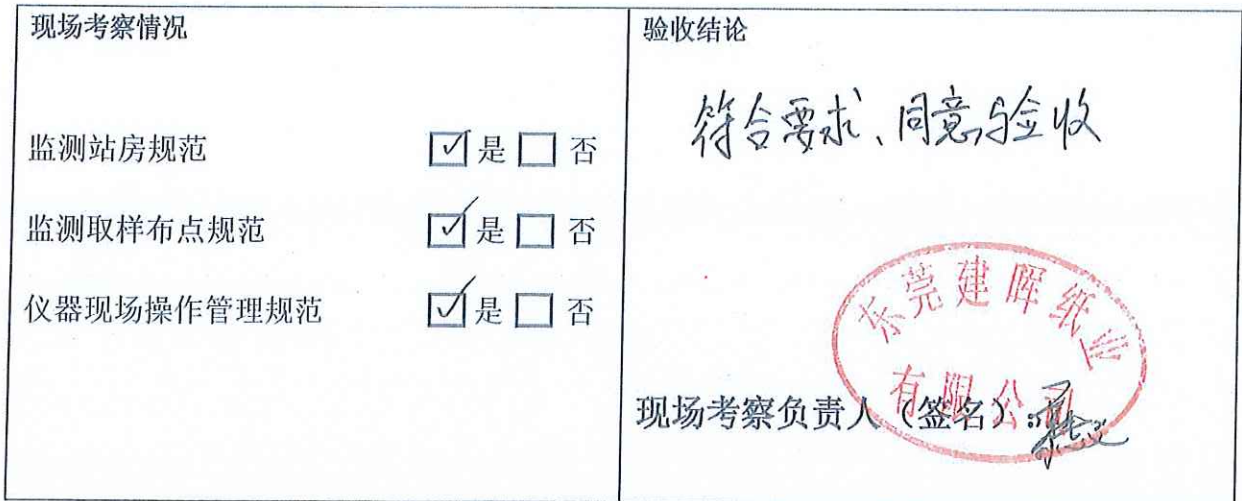 现场考察情况
监测站房规范 ☑是☐否
监测取样布点规范 ☑是☐否
仪器现场操作管理规范 ☑是☐否
验收结论
符合要求、同意验收
东莞建晖纸业
有限公司
现场考察负责人（签名）: